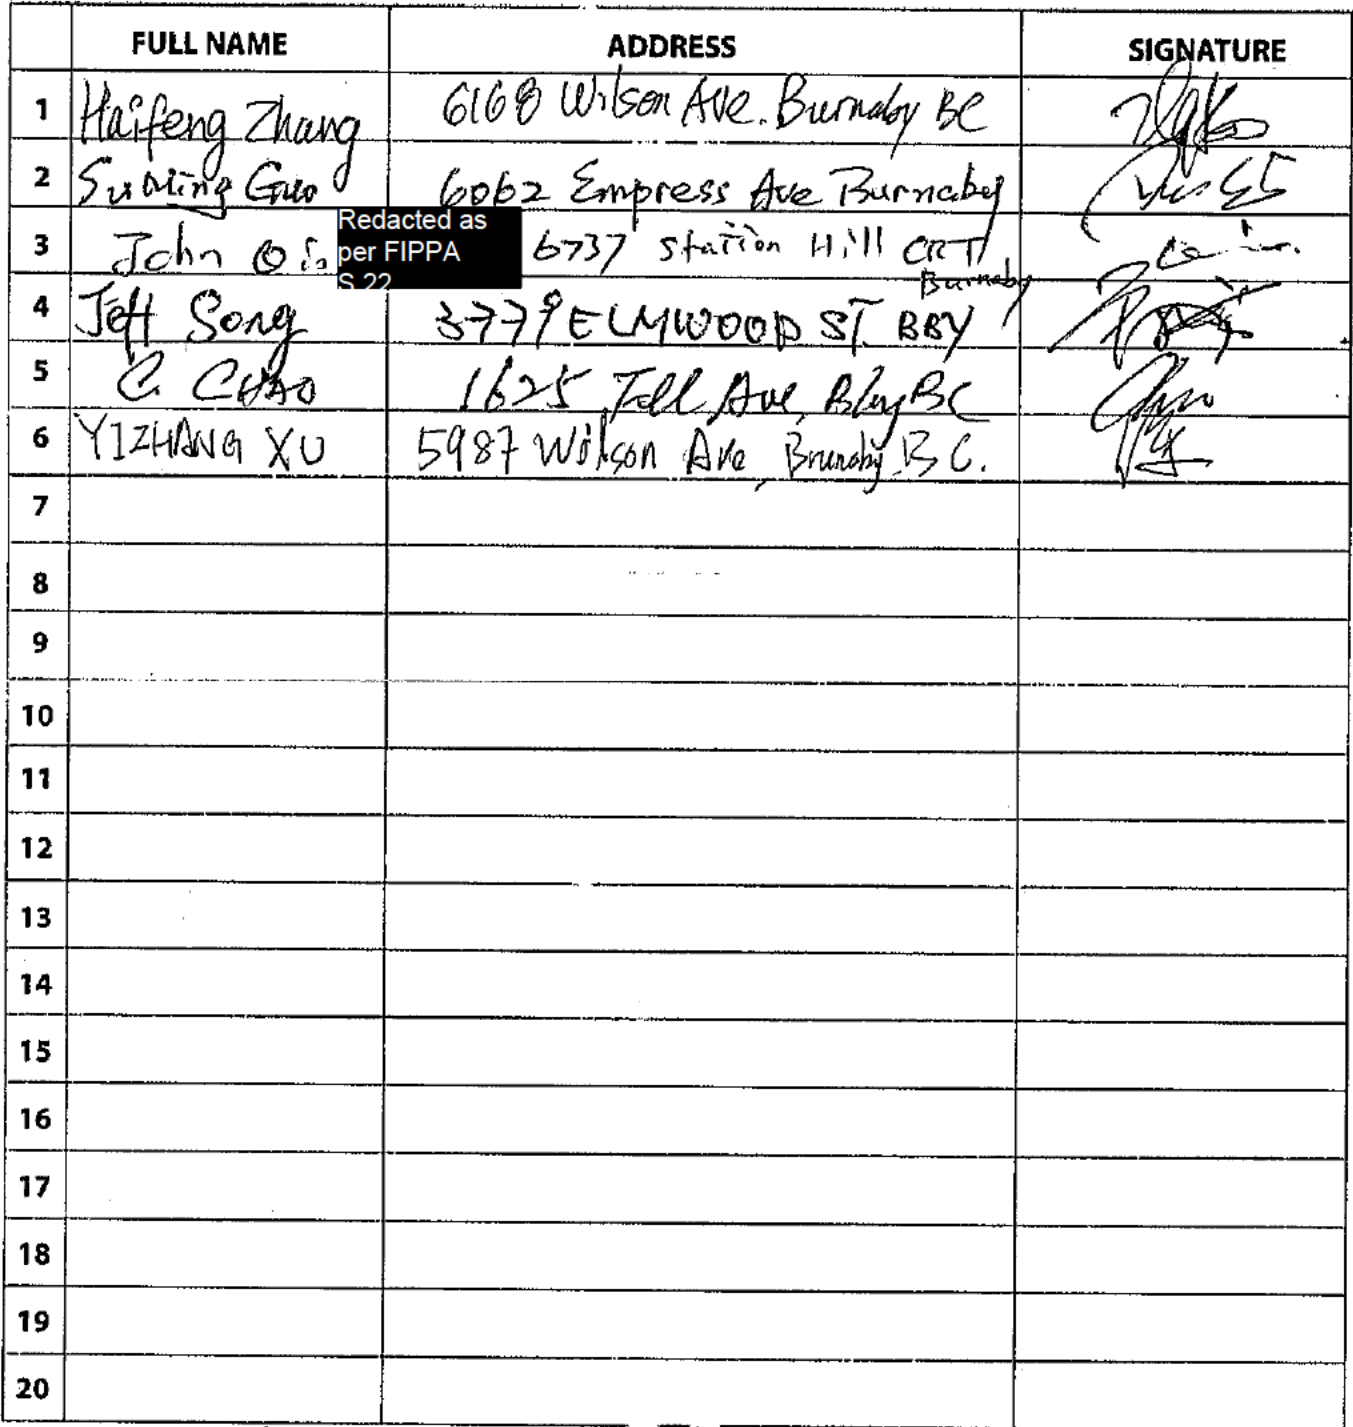 FULL NAME ADDRESS SIGNATURE
1 Haifeng Zhang 6168 Wilson Ave. Burnaby BC
2 Suning Guo 6062 Empress Ave Burnaby
3 John Redacted as per FIPPA S.22 6737 Station Hill CRT Burnaby
4 Jeff Song 3779 ELMWOOD ST. BBY
5 C. CHAO 1625 Ave, Bby BC
6 YIZHANG XU 5987 Wilson Ave, Brunaby, B.C.
7
8
9
10
11
12
13
14
15
16
17
18
19
20